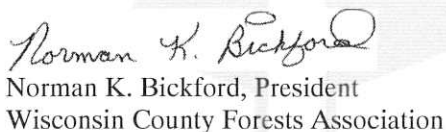 Norman K. Bickford
Norman K. Bickford, President
Wisconsin County Forests Association